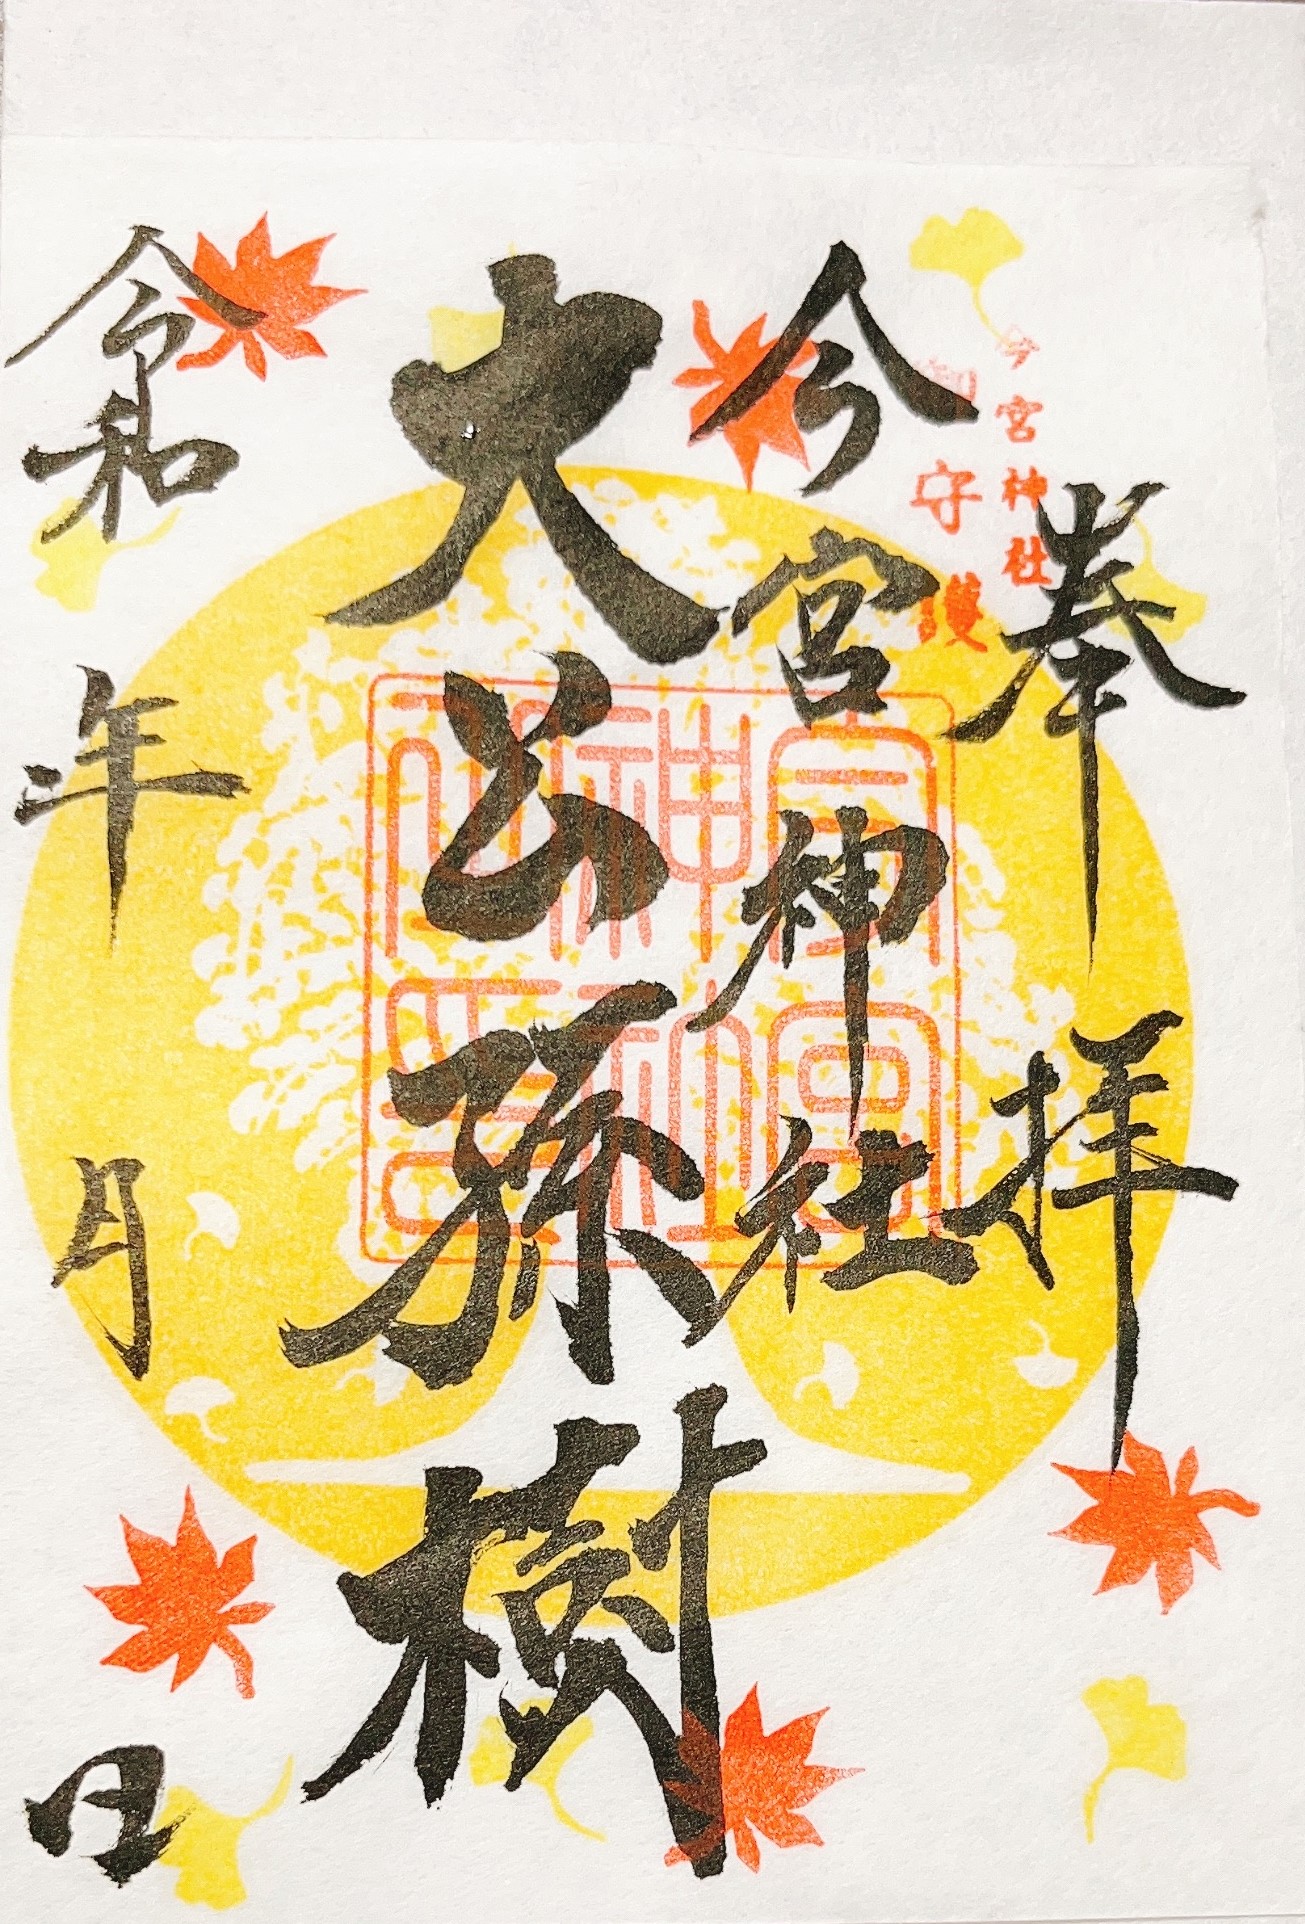 奉拝
今宮神社
御守護
今宮神社
大公孫樹
令和 年 月 日